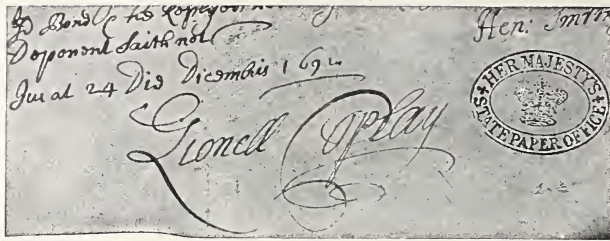 Bond
Hen:
Deponent saith not
Jurat 24 Die Dicembris 1692
Lionell Copley
HER MAJESTY'S
STATE PAPER OFFICE